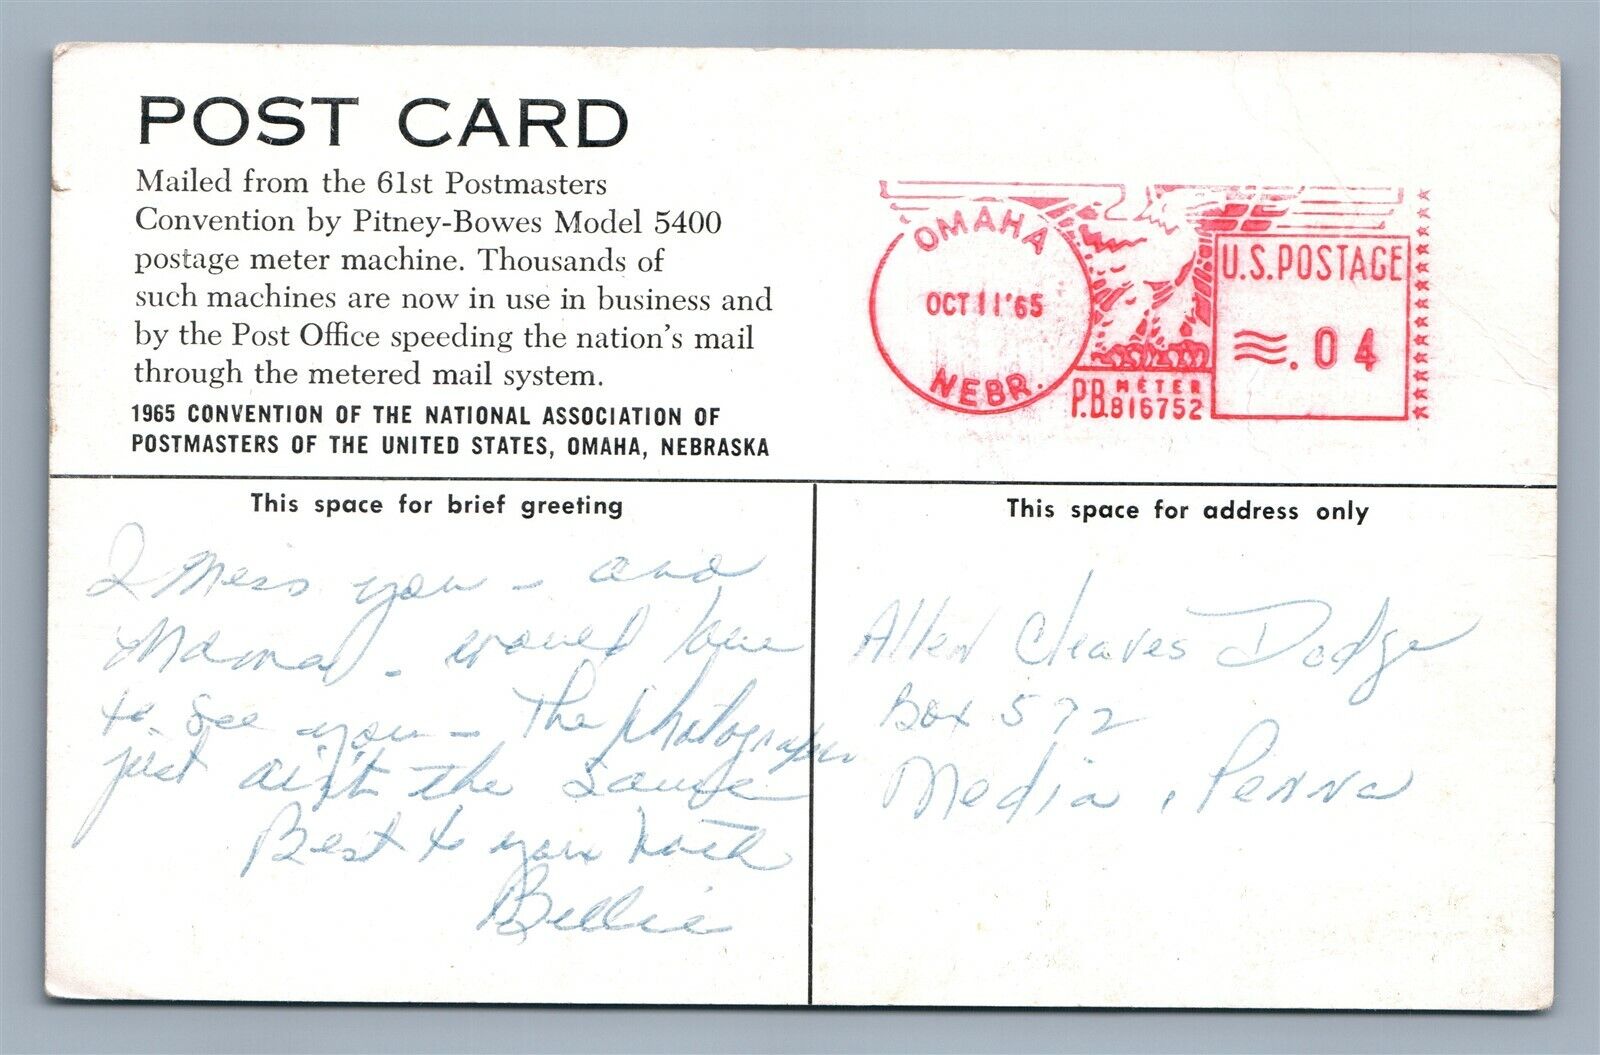 POST CARD
Mailed from the 61st Postmasters
Convention by Pitney-Bowes Model 5400
postage meter machine. Thousands of
such machines are now in use in business and
by the Post Office speeding the nation's mail
through the metered mail system.
1965 CONVENTION OF THE NATIONAL ASSOCIATION OF
POSTMASTERS OF THE UNITED STATES, OMAHA, NEBRASKA
OMAHA
OCT 11 '65
NEBR.
P.B. METER
816752
U.S. POSTAGE
.04
This space for brief greeting
I miss you - and
Mama - would love
to see you - The photographs
just ain't the same
Best to you both
Billie
This space for address only
Allen Cleaves Dodge
Box 572
Media, Penna